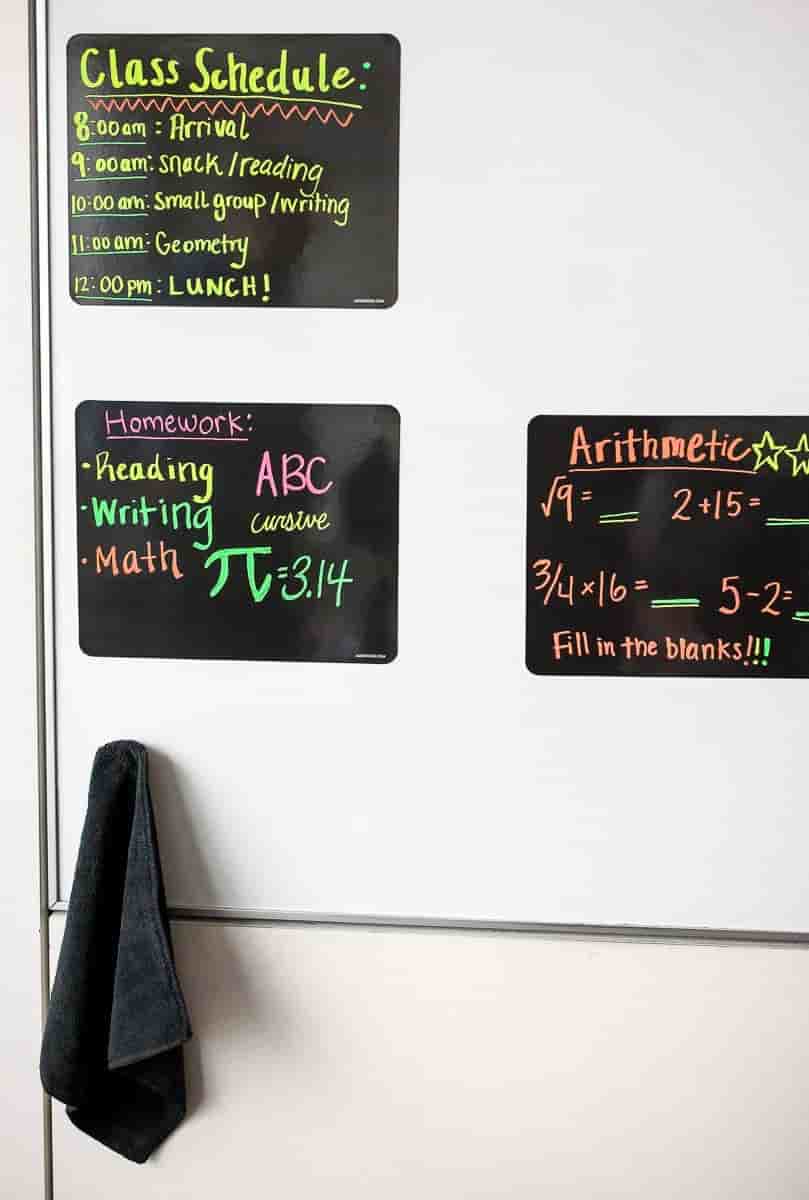 Class Schedule:
8:00am: Arrival
9:00am: snack/reading
10:00 am: Small group/writing
11:00am: Geometry
12:00pm: LUNCH!
Homework:
·Reading ABC
·Writing cursive
·Math π=3.14
Arithmetic
√9= __ 2+15= __
3/4×16= __ 5-2= __
Fill in the blanks!!!